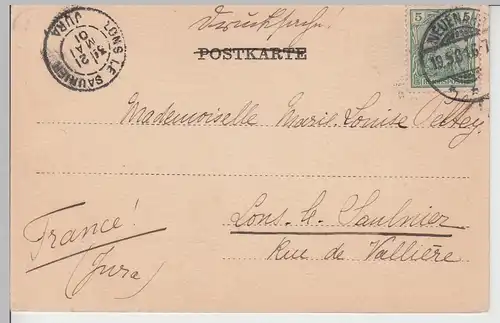 Drucksache!
POSTKARTE
LONS LE SAUNIER
21
MAI
01
JURA
5
19.5.01.6-7
Mademoiselle Marie-Louise
Lons-le-Saulnier
Rue de Vallière
France!
(Jura)